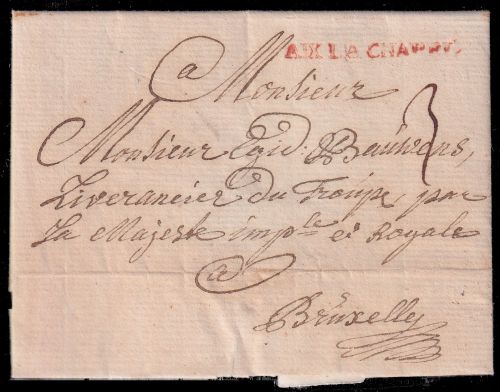 AIX LA CHAPPE.
a Monsieur
Monsieur Egid: Bauwens, 3
Liverancier du Troupe par
La Majeste imp^le et Royale
a
Bruxelles